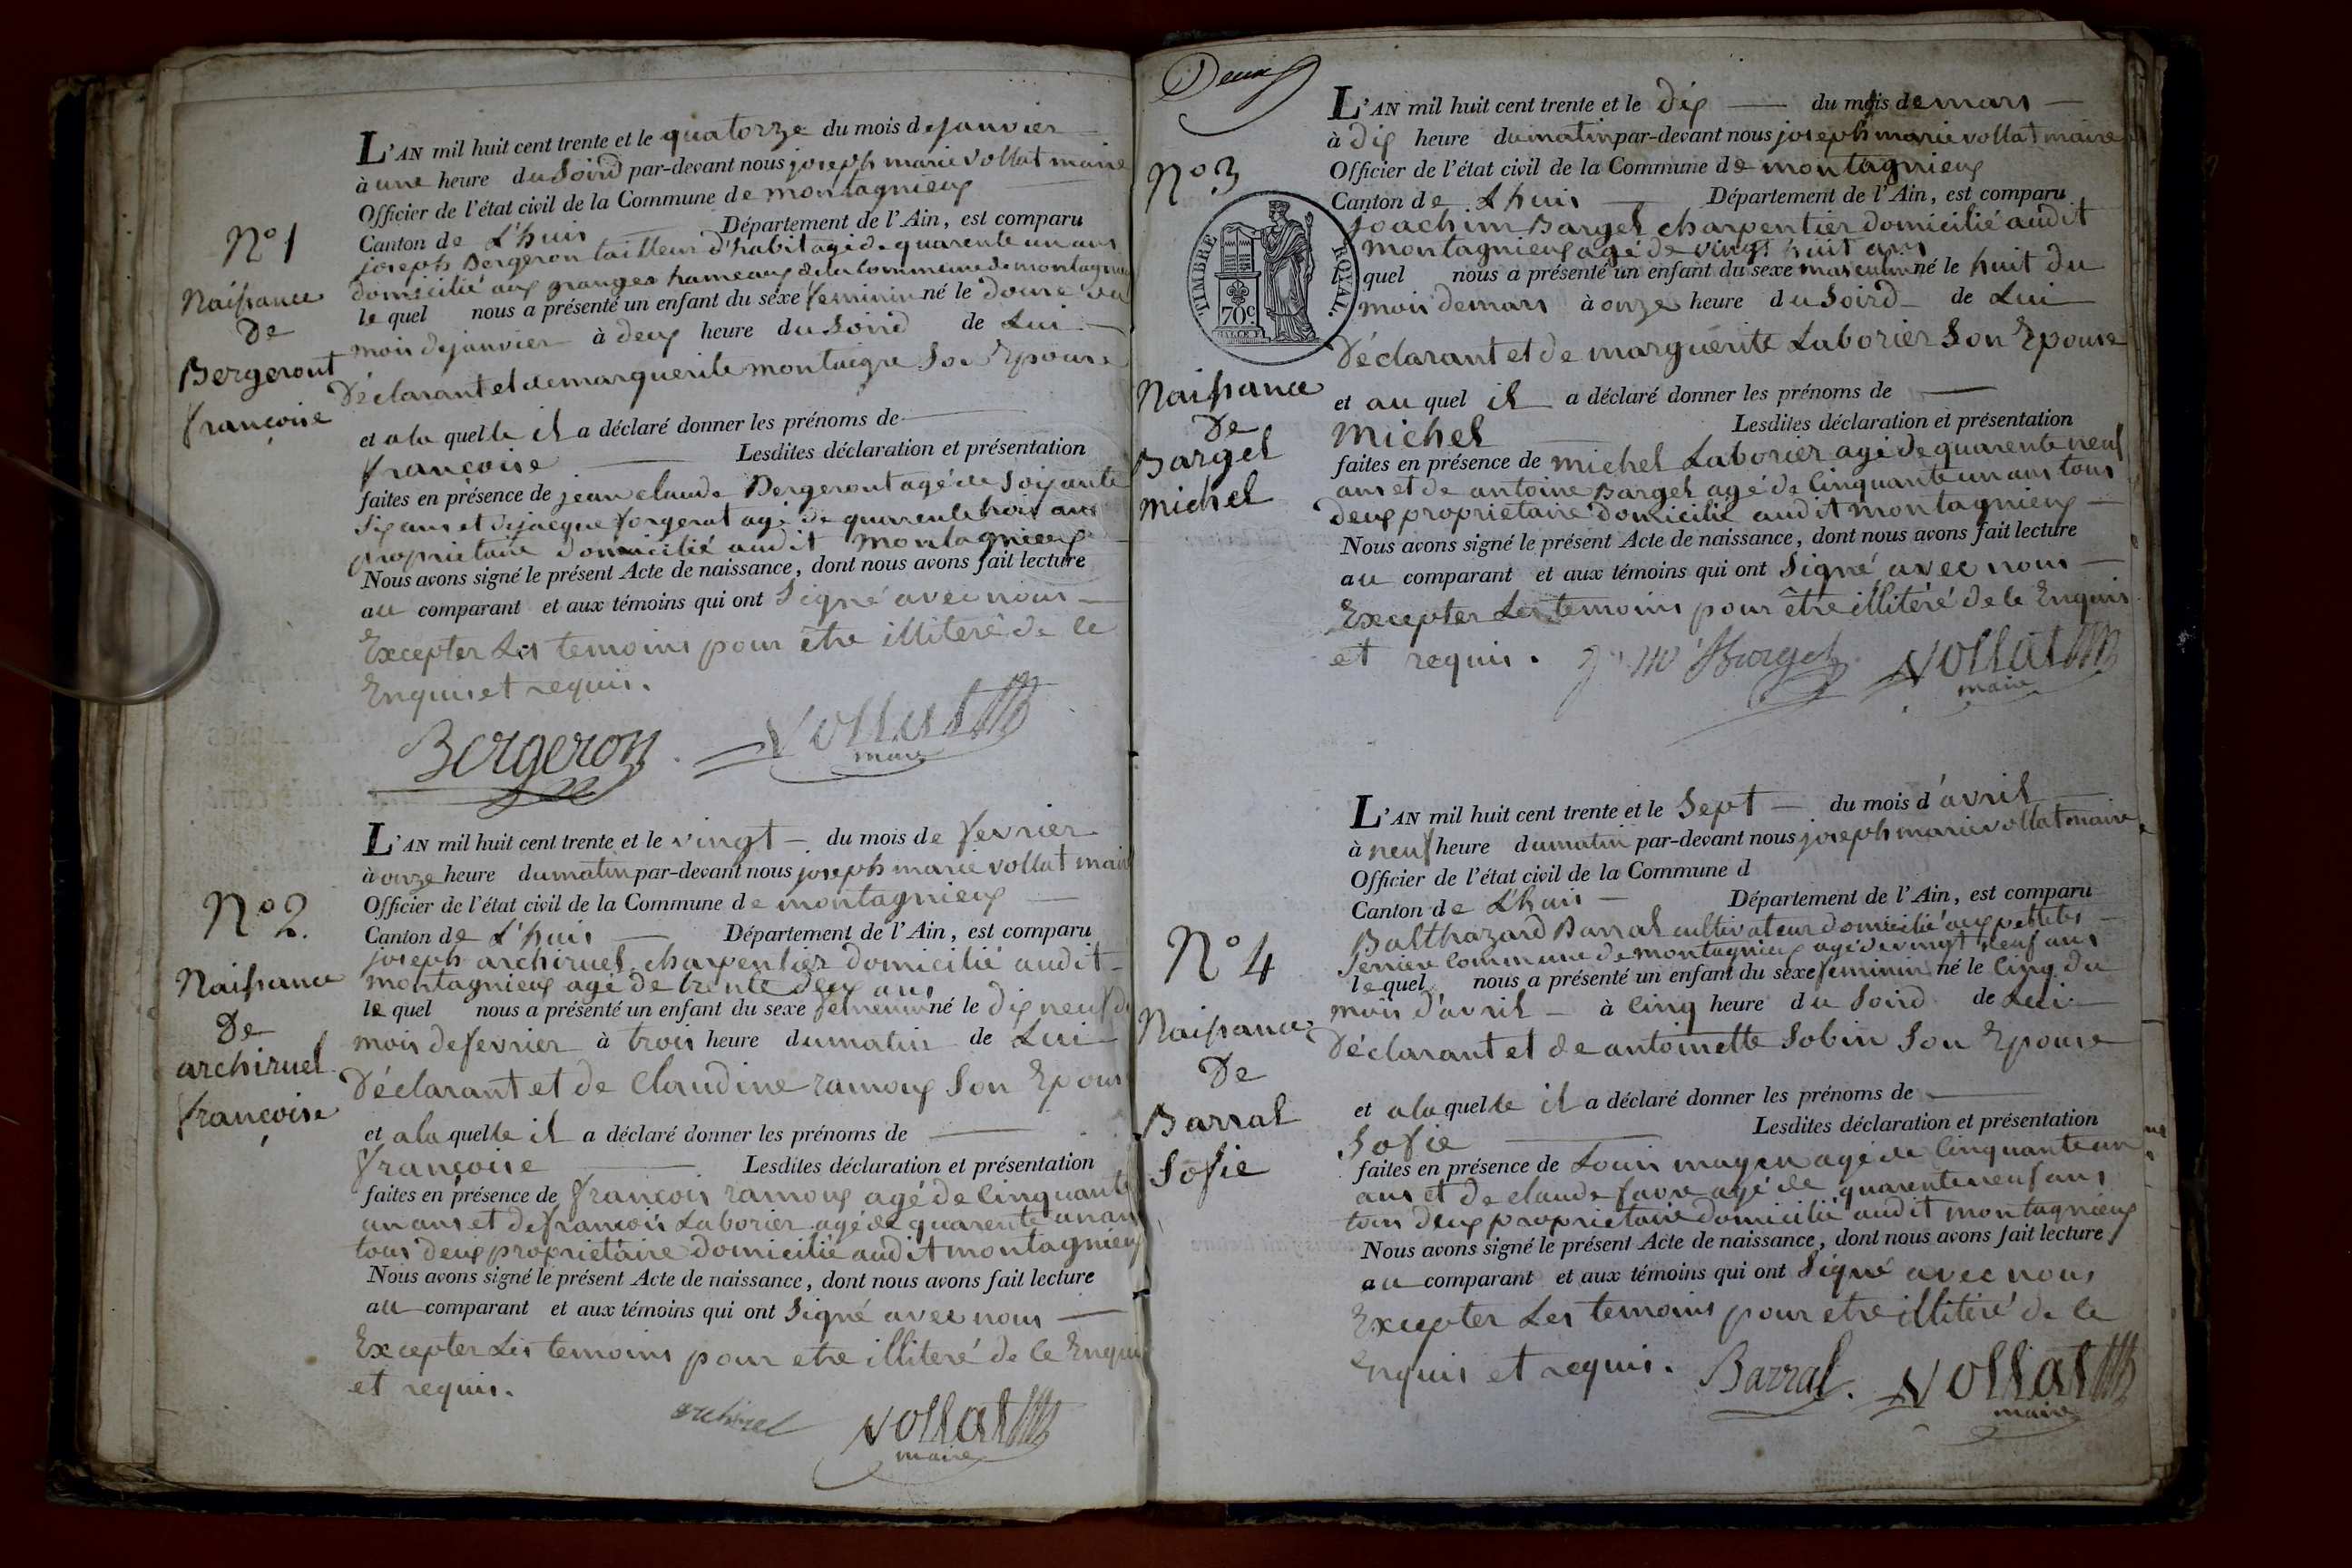 N° 1
Naissance
De
Bergeront
françoise
L'AN mil huit cent trente et le quatorze du mois de janvier
à une heure du Soird par-devant nous joseph marie vollat maire
Officier de l'état civil de la Commune de montagnieux
Canton de L'huis Département de l'Ain, est comparu
joseph Bergeron tailleur d'habit agé de quarente un ans
domicilié aux granges hameaux de la Commune de montagnieux
le quel nous a présenté un enfant du sexe feminin né le douse du
mois de janvier à deux heure du Soird de Lui
Déclarant et de marguerite montaigre Son Epouse
et a la quelle il a déclaré donner les prénoms de
françoise Lesdites déclaration et présentation
faites en présence de jean claude Bergeront agé de Soixante
Six ans et de jacque forgerat agé de quarente trois ans
proprietaire domicilié audit montagnieux
Nous avons signé le présent Acte de naissance, dont nous avons fait lecture
au comparant et aux témoins qui ont Signé avec nous
Excepter Les temoins pour être illiteré de ce
Enquis et requis.
Bergeron Vollat
maire
N° 2.
Naissance
De
archiruel
françoise
L'AN mil huit cent trente et le vingt du mois de fevrier
à onze heure du matin par-devant nous joseph marie vollat maire
Officier de l'état civil de la Commune de montagnieux
Canton de L'huis Département de l'Ain, est comparu
joseph archiruel charpentier domicilié audit
montagnieux agé de trente deux ans
le quel nous a présenté un enfant du sexe femenin né le dix neuf du
mois de fevrier à trois heure du matin de Lui
Déclarant et de Claudine ramoux Son Epouse
et a la quelle il a déclaré donner les prénoms de
françoise Lesdites déclaration et présentation
faites en présence de françois ramoux agé de Cinquante
un ans et de françois Laborier agé de quarente un ans
tous deux proprietaire domicilié audit montagnieux
Nous avons signé le présent Acte de naissance, dont nous avons fait lecture
au comparant et aux témoins qui ont Signé avec nous
Excepter Les temoins pour etre illiteré de ce Enquis
et requis.
archiruel Vollat
maire
Deux
N° 3
TIMBRE ROYAL.
70c
Naissance
De
Bargel
michel
L'AN mil huit cent trente et le dix du mois de mars
à dix heure du matin par-devant nous joseph marie vollat maire
Officier de l'état civil de la Commune de montagnieux
Canton de L'huis Département de l'Ain, est comparu
joachim Bargel charpentier domicilié audit
montagnieux agé de vingt huit ans
quel nous a présenté un enfant du sexe masculin né le huit du
mois de mars à onze heure du Soird de Lui
Déclarant et de marguerite Laborier Son Epouse
et au quel il a déclaré donner les prénoms de
Michel Lesdites déclaration et présentation
faites en présence de michel Laborier agé de quarente neuf
ans et de antoine Bargel agé de Cinquante un ans tous
deux proprietaire domicilié audit montagnieux
Nous avons signé le présent Acte de naissance, dont nous avons fait lecture
au comparant et aux témoins qui ont Signé avec nous
Excepter Les temoins pour être illiteré de ce Enquis
et requis. Bargel Vollat
maire
N° 4
Naissance
De
Barral
Sofie
L'AN mil huit cent trente et le Sept du mois d'avril
à neuf heure du matin par-devant nous joseph marie vollat maire
Officier de l'état civil de la Commune d
Canton de L'huis Département de l'Ain, est comparu
Balthazard Barral cultivateur domicilié aux pettites
Serriere Commune de montagnieux agé de vingt neuf ans
le quel nous a présenté un enfant du sexe feminin né le Cinq du
mois d'avril à Cinq heure du Soird de Lui
Déclarant et de antoinette Sobin Son Epouse
et a la quelle il a déclaré donner les prénoms de
Sofie Lesdites déclaration et présentation
faites en présence de Louis mayen agé de Cinquante un
ans et de claude favre agé de quarente neuf ans
tous deux proprietaire domicilié audit montagnieux
Nous avons signé le présent Acte de naissance, dont nous avons fait lecture
au comparant et aux témoins qui ont Signé avec nous
Excepter Les temoins pour etre illiteré de ce
Enquis et requis. Barral. Vollat
maire